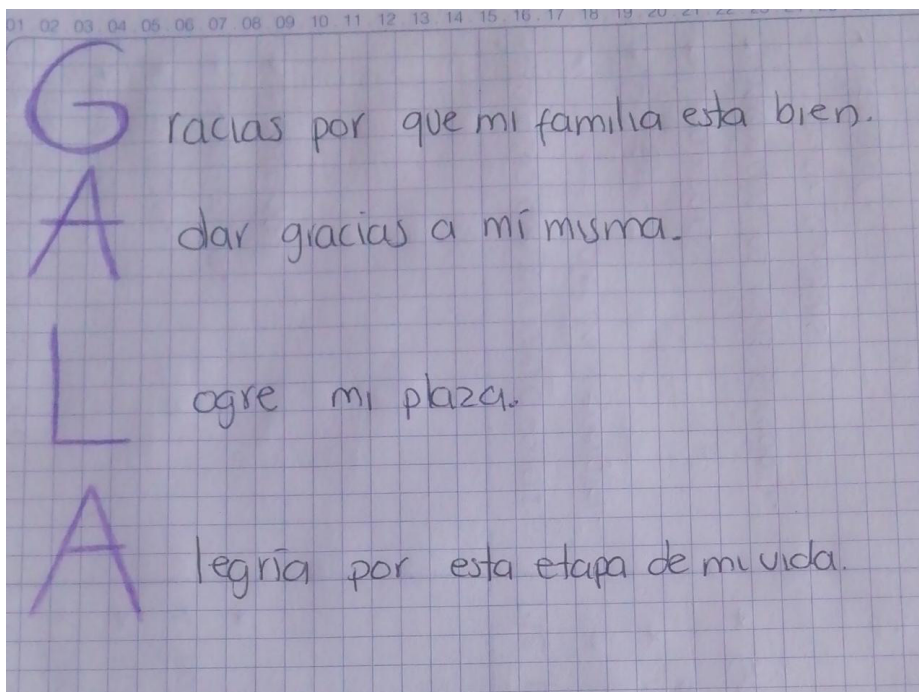 01 02 03 04 05 06 07 08 09 10 11 12 13 14 15 16 17 18 19 20 21 22
Gracias por que mi familia esta bien.
A dar gracias a mí misma.
Logre mi plaza.
Alegría por esta etapa de mi vida.